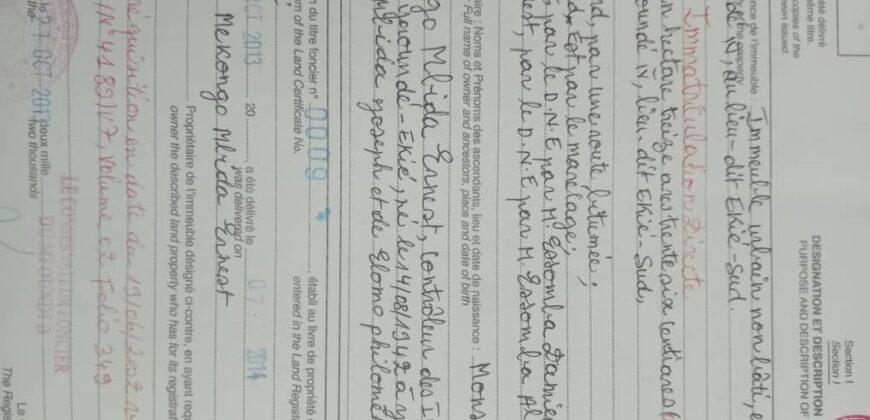 Section I
Section I
DÉSIGNATION ET DESCRIPTION
PURPOSE AND DESCRIPTION OF
été délivré
même titre
copies of the
been issued
ence de l'immeuble : Immeuble urbain non bâti,
dé IV, au lieu-dit Ekié-Sud.
Immatriculation Directe
hectare treize ares trente six centiares
oundé IV, lieu-dit Ekié-Sud,
rd, par une route bitumée ;
Est par le marécage ;
par le D.N.E par M. Essomba Damie
est, par le D.N.E par M. Essomba Al
aire : Noms et Prénoms des ascendants, lieu et date de naissance : Mons
Full name of owner and ancestors, place and date of birth
go Mbida Ernest, Contrôleur des I
aoundé-Ekié, né le 14/08/1942 à
bida Joseph et de Elomo philomé
n du titre foncier n° 0009 , établi au livre de propriété
m of the Land Certificate No. entered in the Land Regist
OCT 2013 20 , a été délivré le 07 2014
was delivered on
Mekongo Mbida Ernest
Propriétaire de l'immeuble désigné ci-contre, en ayant requ
owner the described land property who has for its registrat
réquisition en date du 19/06/2002
N° 4189/17, Volume 02 Folio 349
le 27 OCT 201 deux mille
the two thousands
LE CONSERVATEUR FONCIER
DU MFOUNDI
Le
The Regis